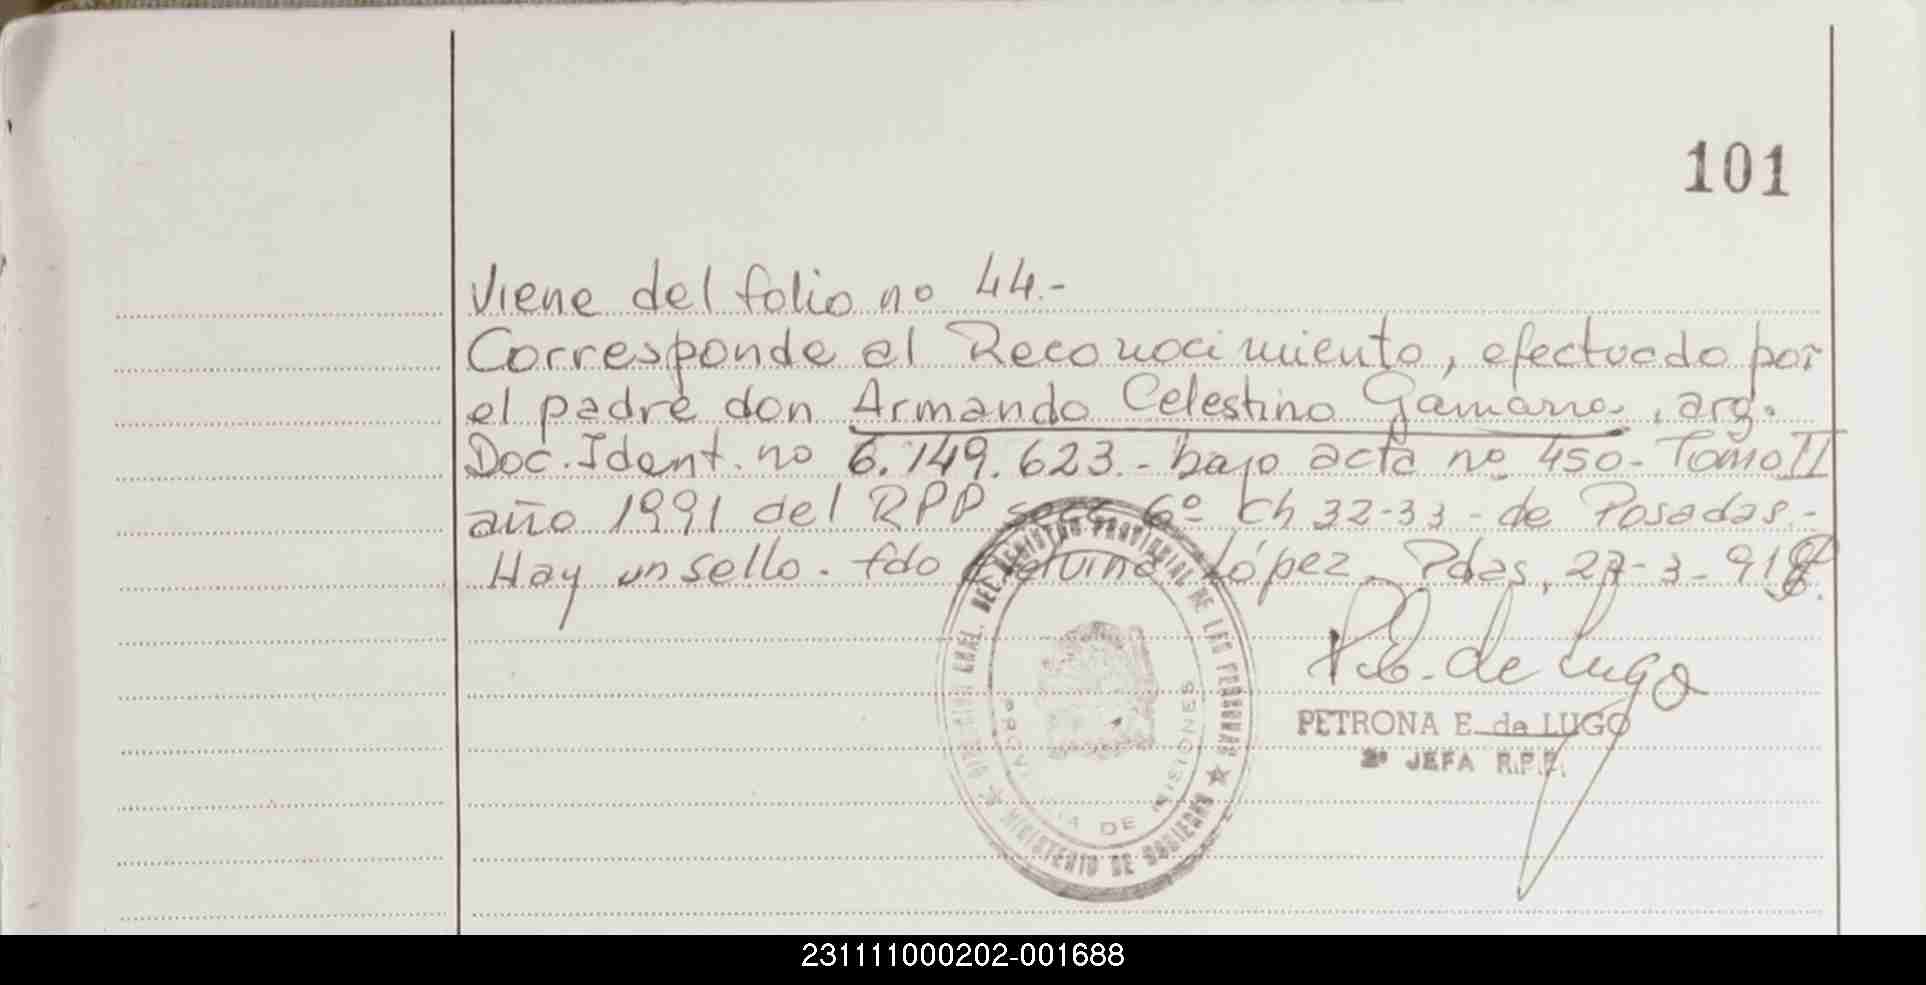 101
Viene del folio nº 44.-
Corresponde al Reconocimiento, efectuado por
el padre don Armando Celestino Gamarra, arg.
Doc. Ident. nº 6.149.623.- bajo acta nº 450- Tomo II
año 1991 del RPP secc 6º Ch 32-33 - de Posadas.-
Hay un sello. fdo López. Pdas, 27-3-91
P.E. de Lugo
PETRONA E. de LUGO
2ª JEFA R.P.P.
DIRECCION GRAL. DEL REGISTRO PROVINCIAL DE LAS PERSONAS
MINISTERIO DE GOBIERNO
PROVINCIA DE MISIONES
231111000202-001688